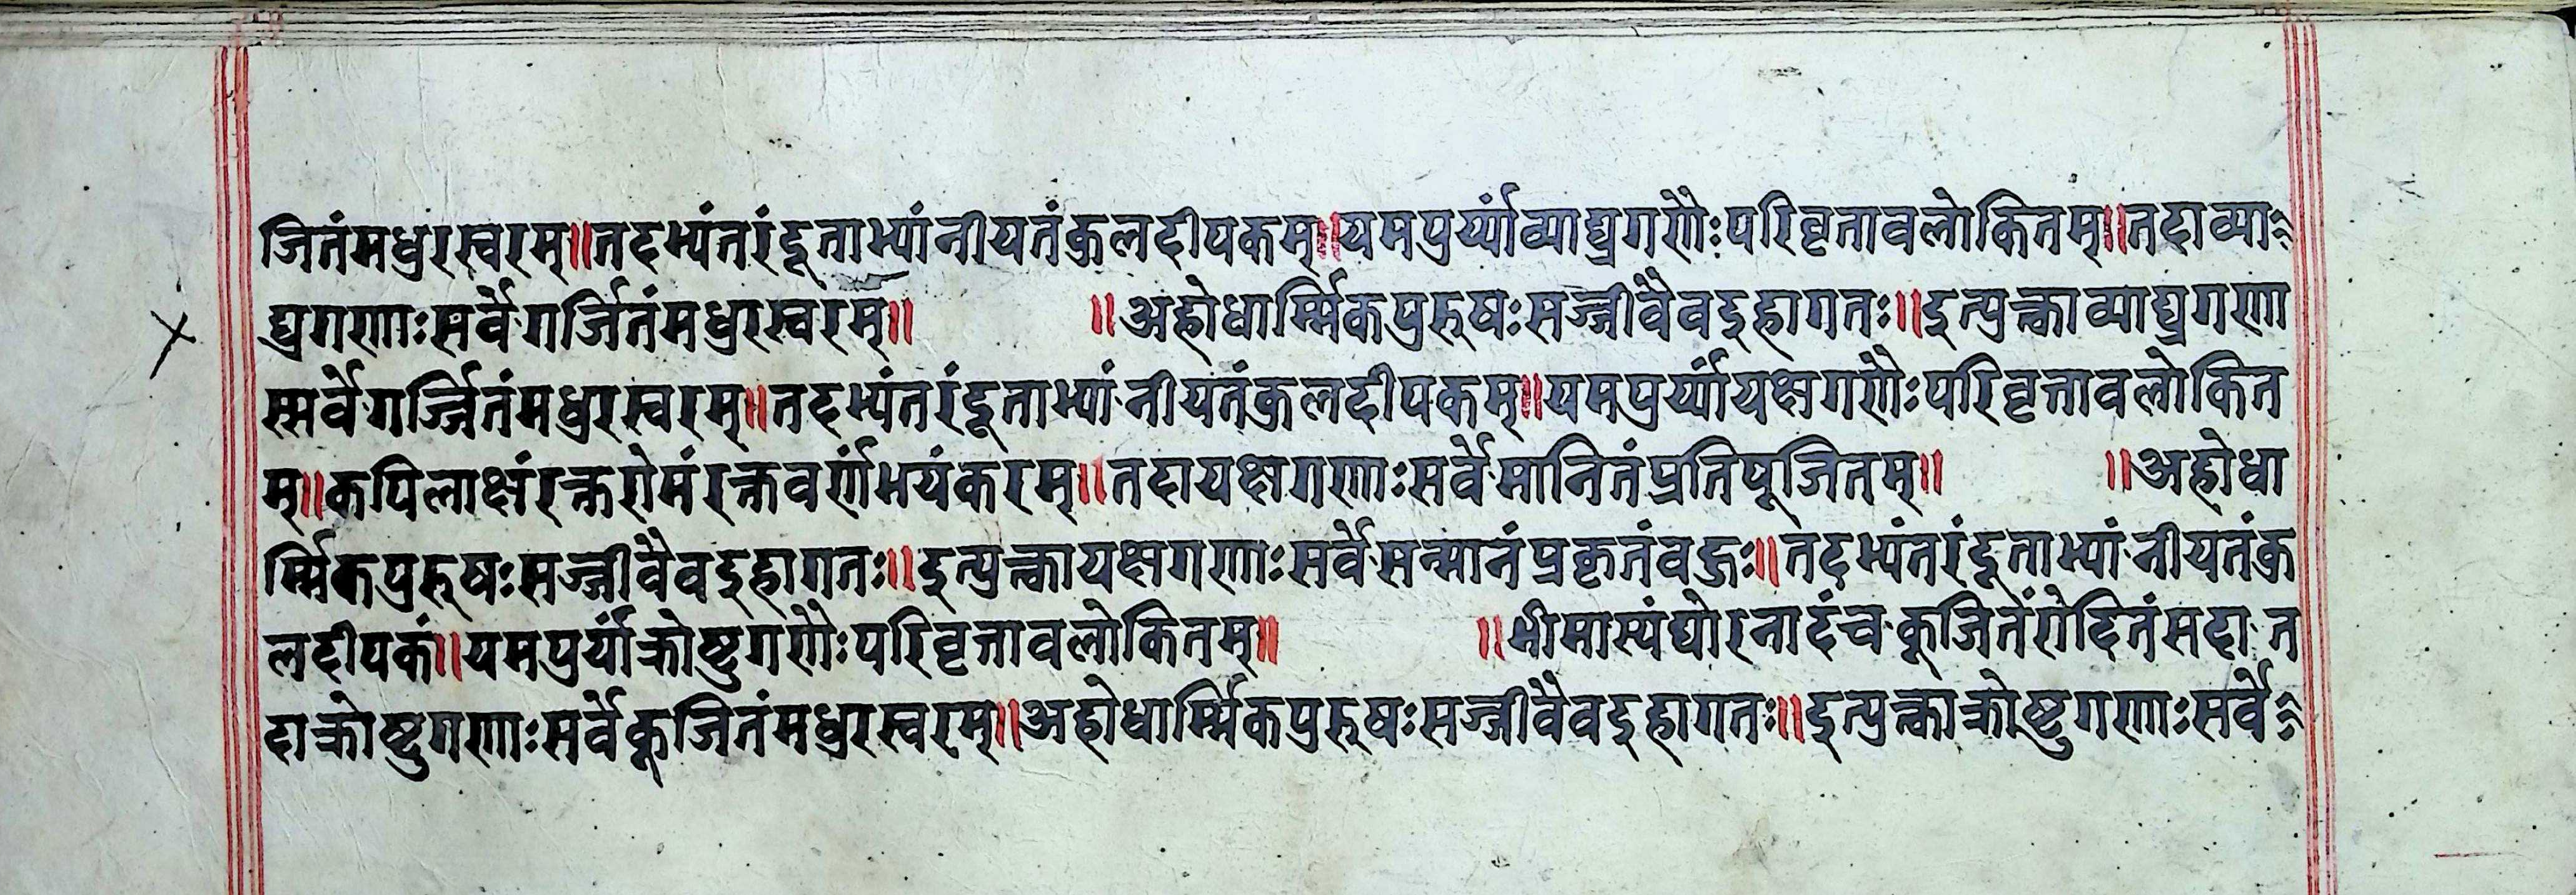 जितंमधुरस्वरम्॥तदभ्यंतरंदूताभ्यांनीयतंकुलदीपकम्॥यमपुर्य्यांव्याघ्रगणैः परिवृत्तावलोकितम्॥तदाव्या
घ्रगणाः सर्वेगर्जितंमधुरस्वरम्॥ ॥अहोधार्म्मिकपुरूषः सज्जीवैवदुहागतः॥दुत्पुक्त्वाव्याघ्रगणा
स्सर्वेगर्ज्जितंमधुरस्वरम्॥तदभ्यंतरंदूताभ्यांनीयतंकुलदीपकम्॥यमपुर्य्यांयक्षगणैः परिवृत्तावलोकित
म्॥कपिलाक्षंरक्तरोमंरक्तवर्णंभयंकरम्॥तदायक्षगणाः सर्वेमानितंप्रतिपूजितम्॥ ॥अहोधा
र्म्मिकपुरूषः सज्जीवैवदुहागतः॥दुत्पुक्त्वायक्षगणाः सर्वेसन्मानंप्रकृतंवज्रः॥तदभ्यंतरंदूताभ्यांनीयतंकु
लदीपकं॥यमपुर्यांक्रोष्टुगणैः परिवृत्तावलोकितम्॥ ॥भीमास्यंघोरनादंचकूजितेंरोदितंसदात
दाक्रोष्टुगणाः सर्वेकूजितंमधुरस्वरम्॥अहोधार्म्मिकपुरूषः सज्जीवैवदुहागतः॥दुत्पुक्त्वाक्रोष्टुगणाः सर्वे